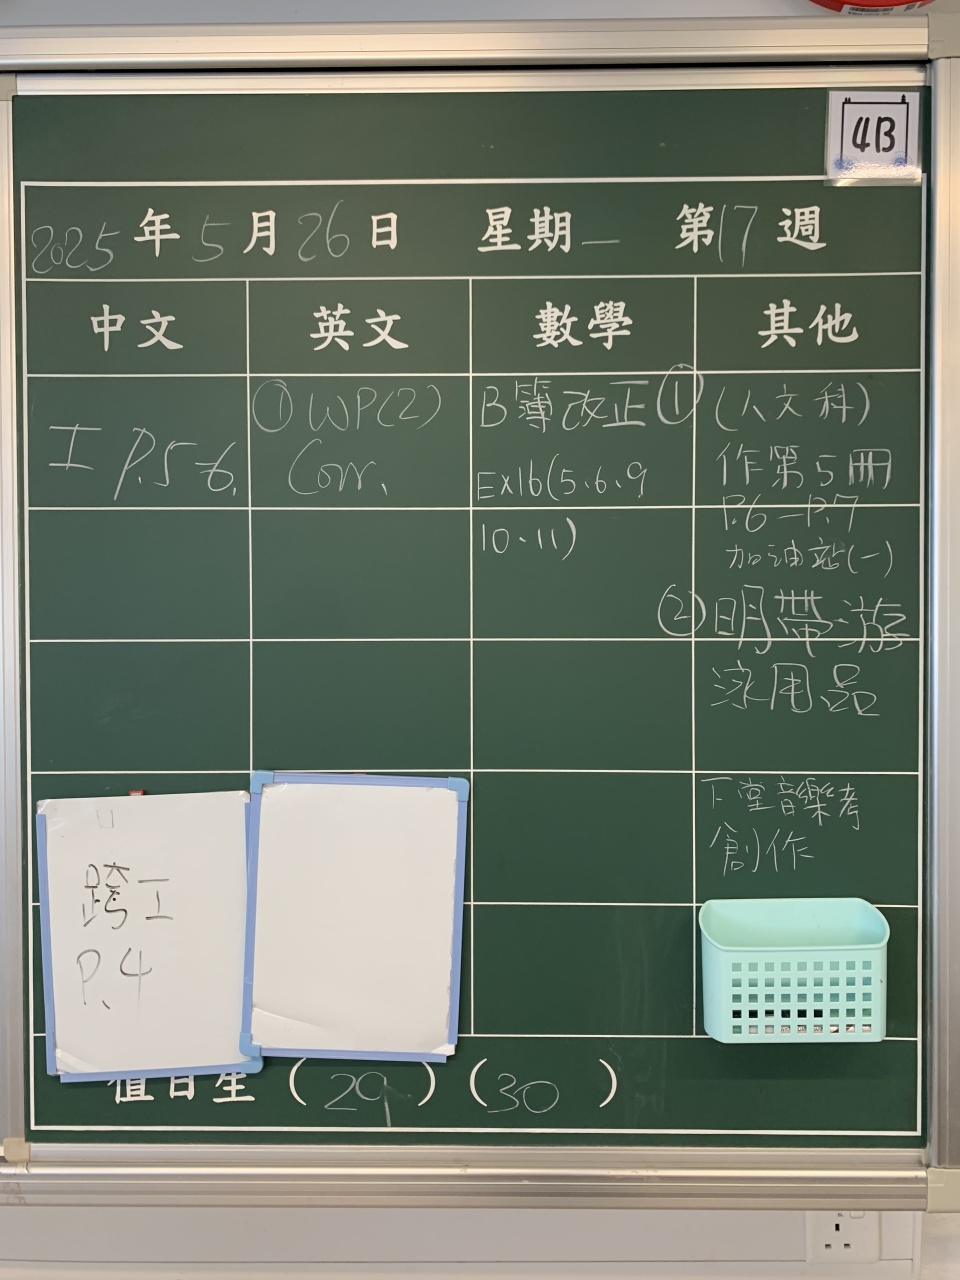 4B
2025年5月26日 星期一 第17週
中文 英文 數學 其他
工 P.5-6.
①WP(2)
Corr.
B簿改正
Ex16(5、6、9
10、11)
①(人文科)
作第5冊
P.6—P.7
加油站(一)
②明帶游
泳用品
下堂音樂考
創作
跨工
P.4
值日生(29)(30)